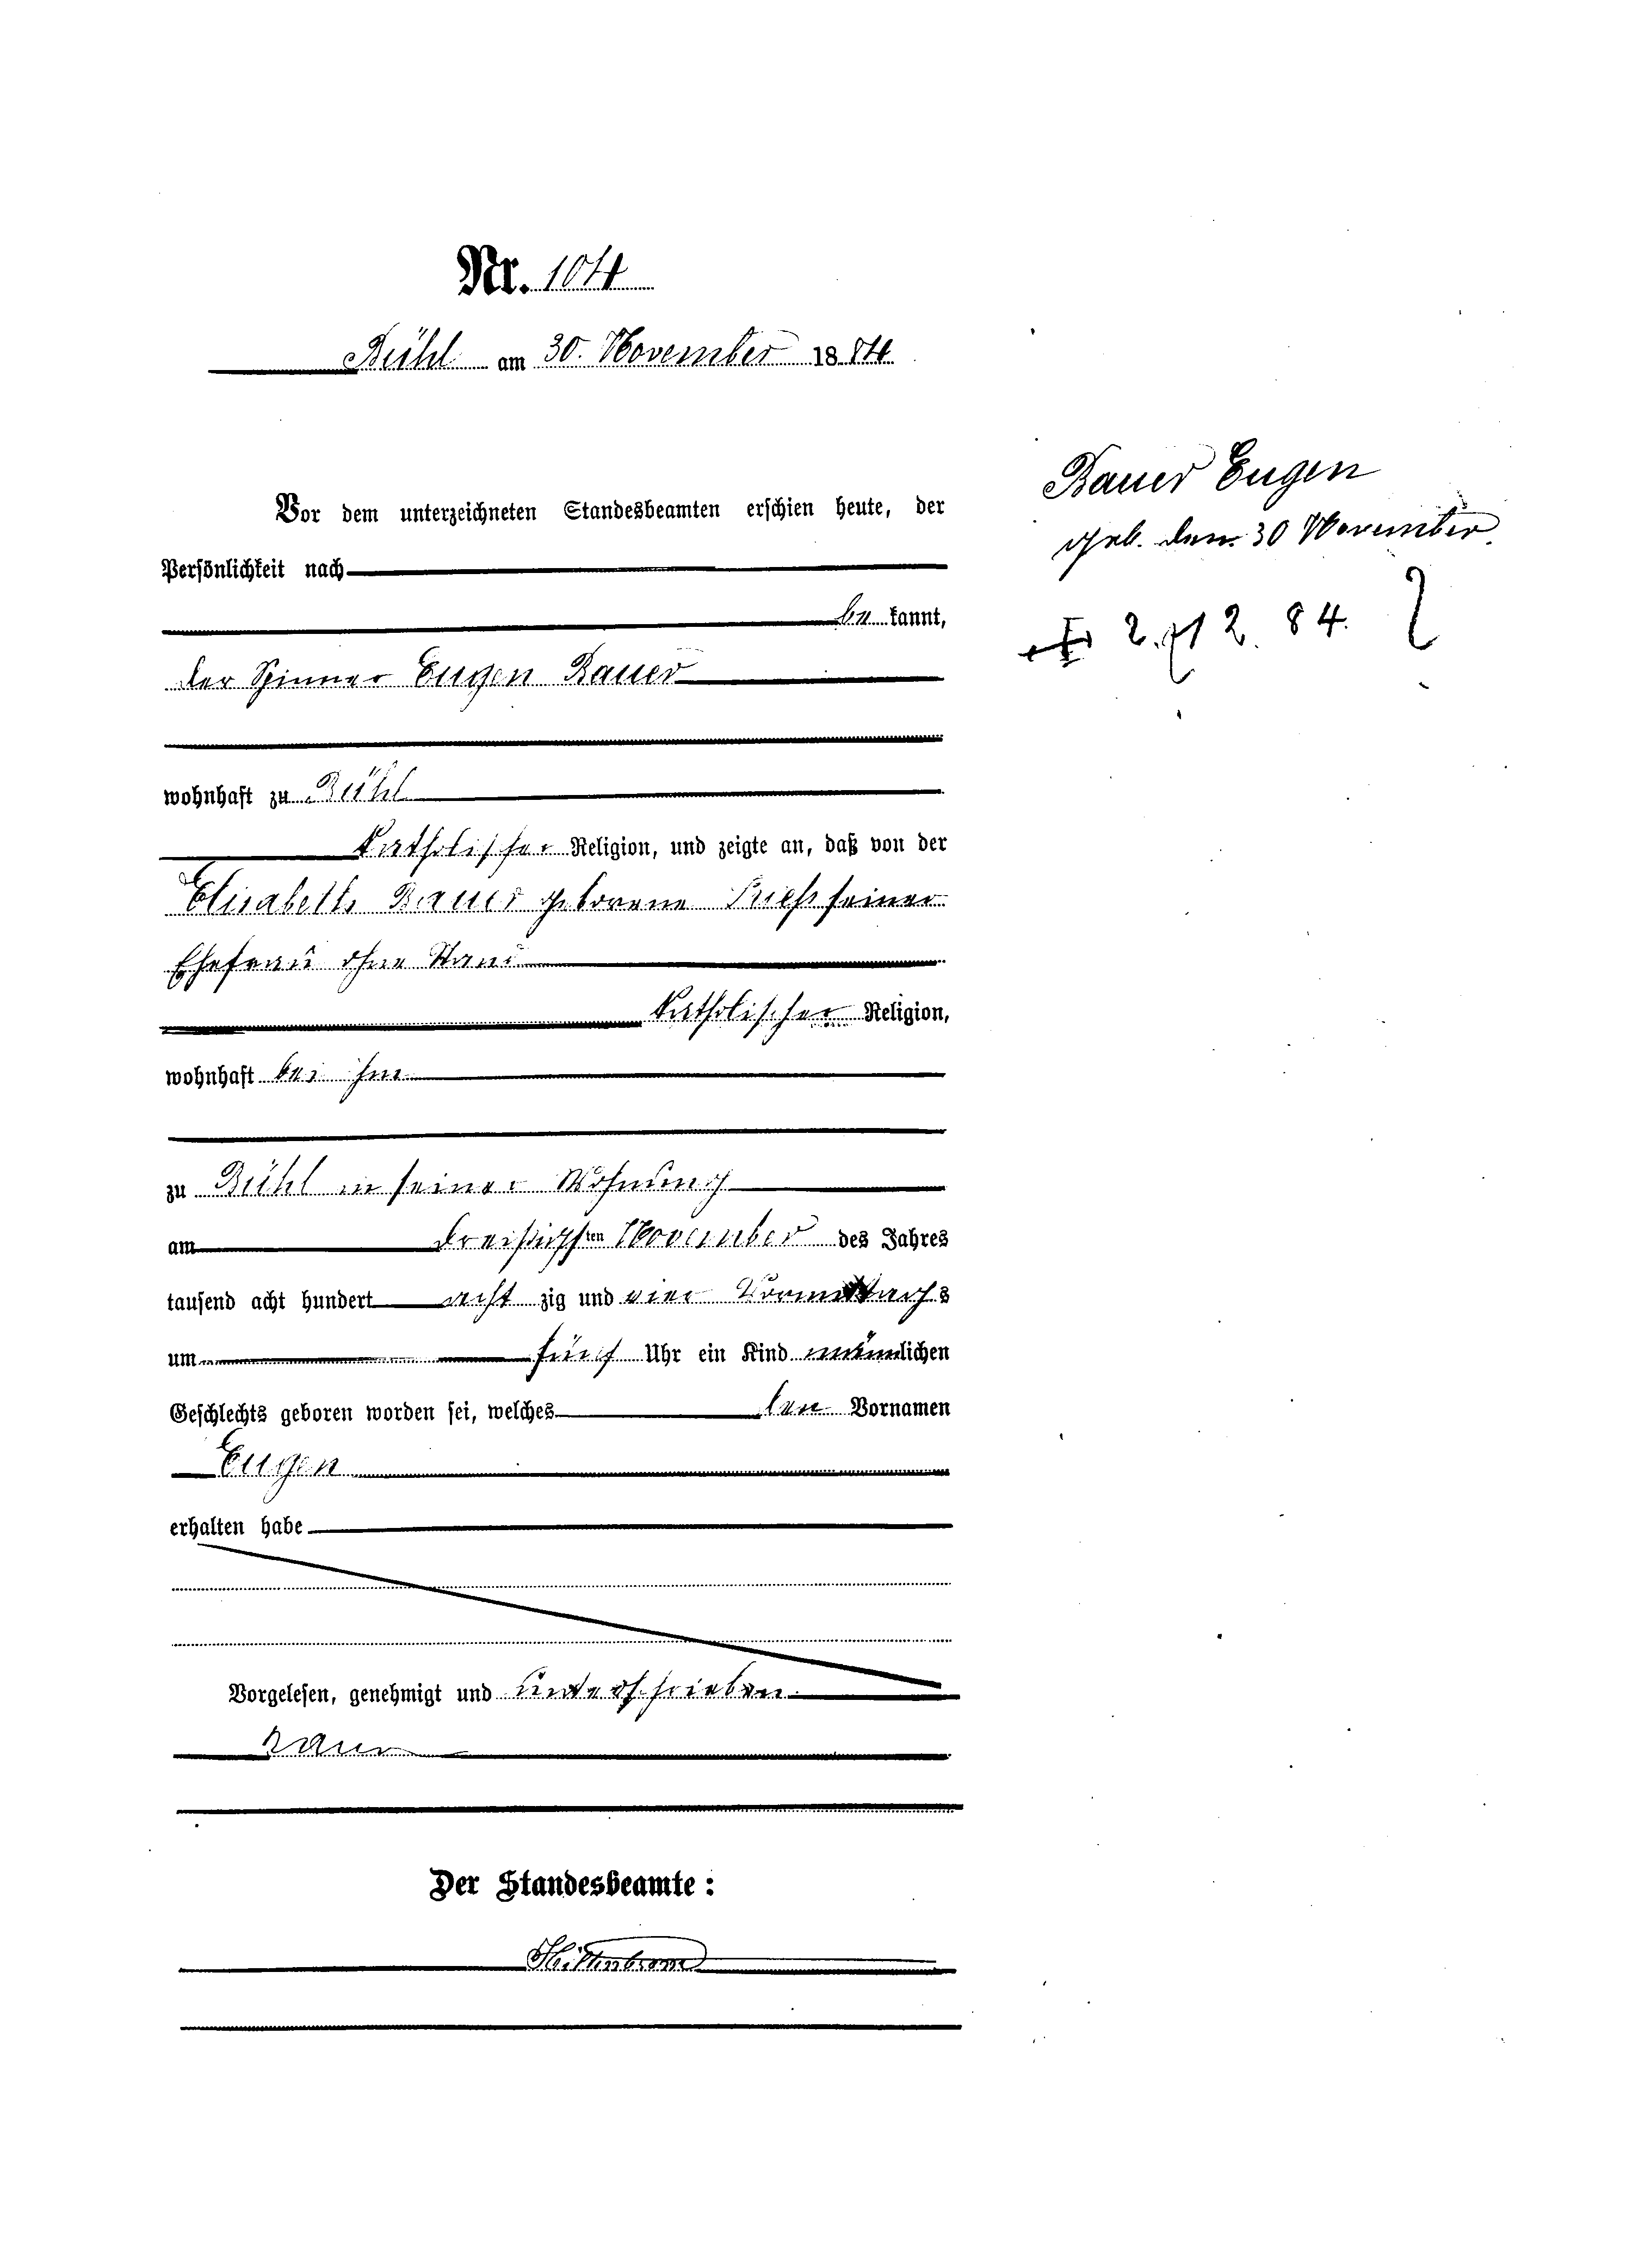 Nr. 104
Bühl am 30. November 1884
Vor dem unterzeichneten Standesbeamten erschien heute, der
Persönlichkeit nach
be kannt,
der Spinner Eugen Bauer
wohnhaft zu Bühl
katholischer Religion, und zeigte an, daß von der
Elisabeth Bauer geborene seiner
Ehefrau ohne Stand
katholischer Religion,
wohnhaft bei ihm
zu Bühl in seiner Wohnung
am dreißigsten November des Jahres
tausend acht hundert acht zig und vier Vormittags
um fünf Uhr ein Kind männlichen
Geschlechts geboren worden sei, welches den Vornamen
Eugen
erhalten habe
Vorgelesen, genehmigt und unterschrieben
Bauer
Der Standesbeamte:
Bauer Eugen
geb. den 30 November.
2. 12. 84.